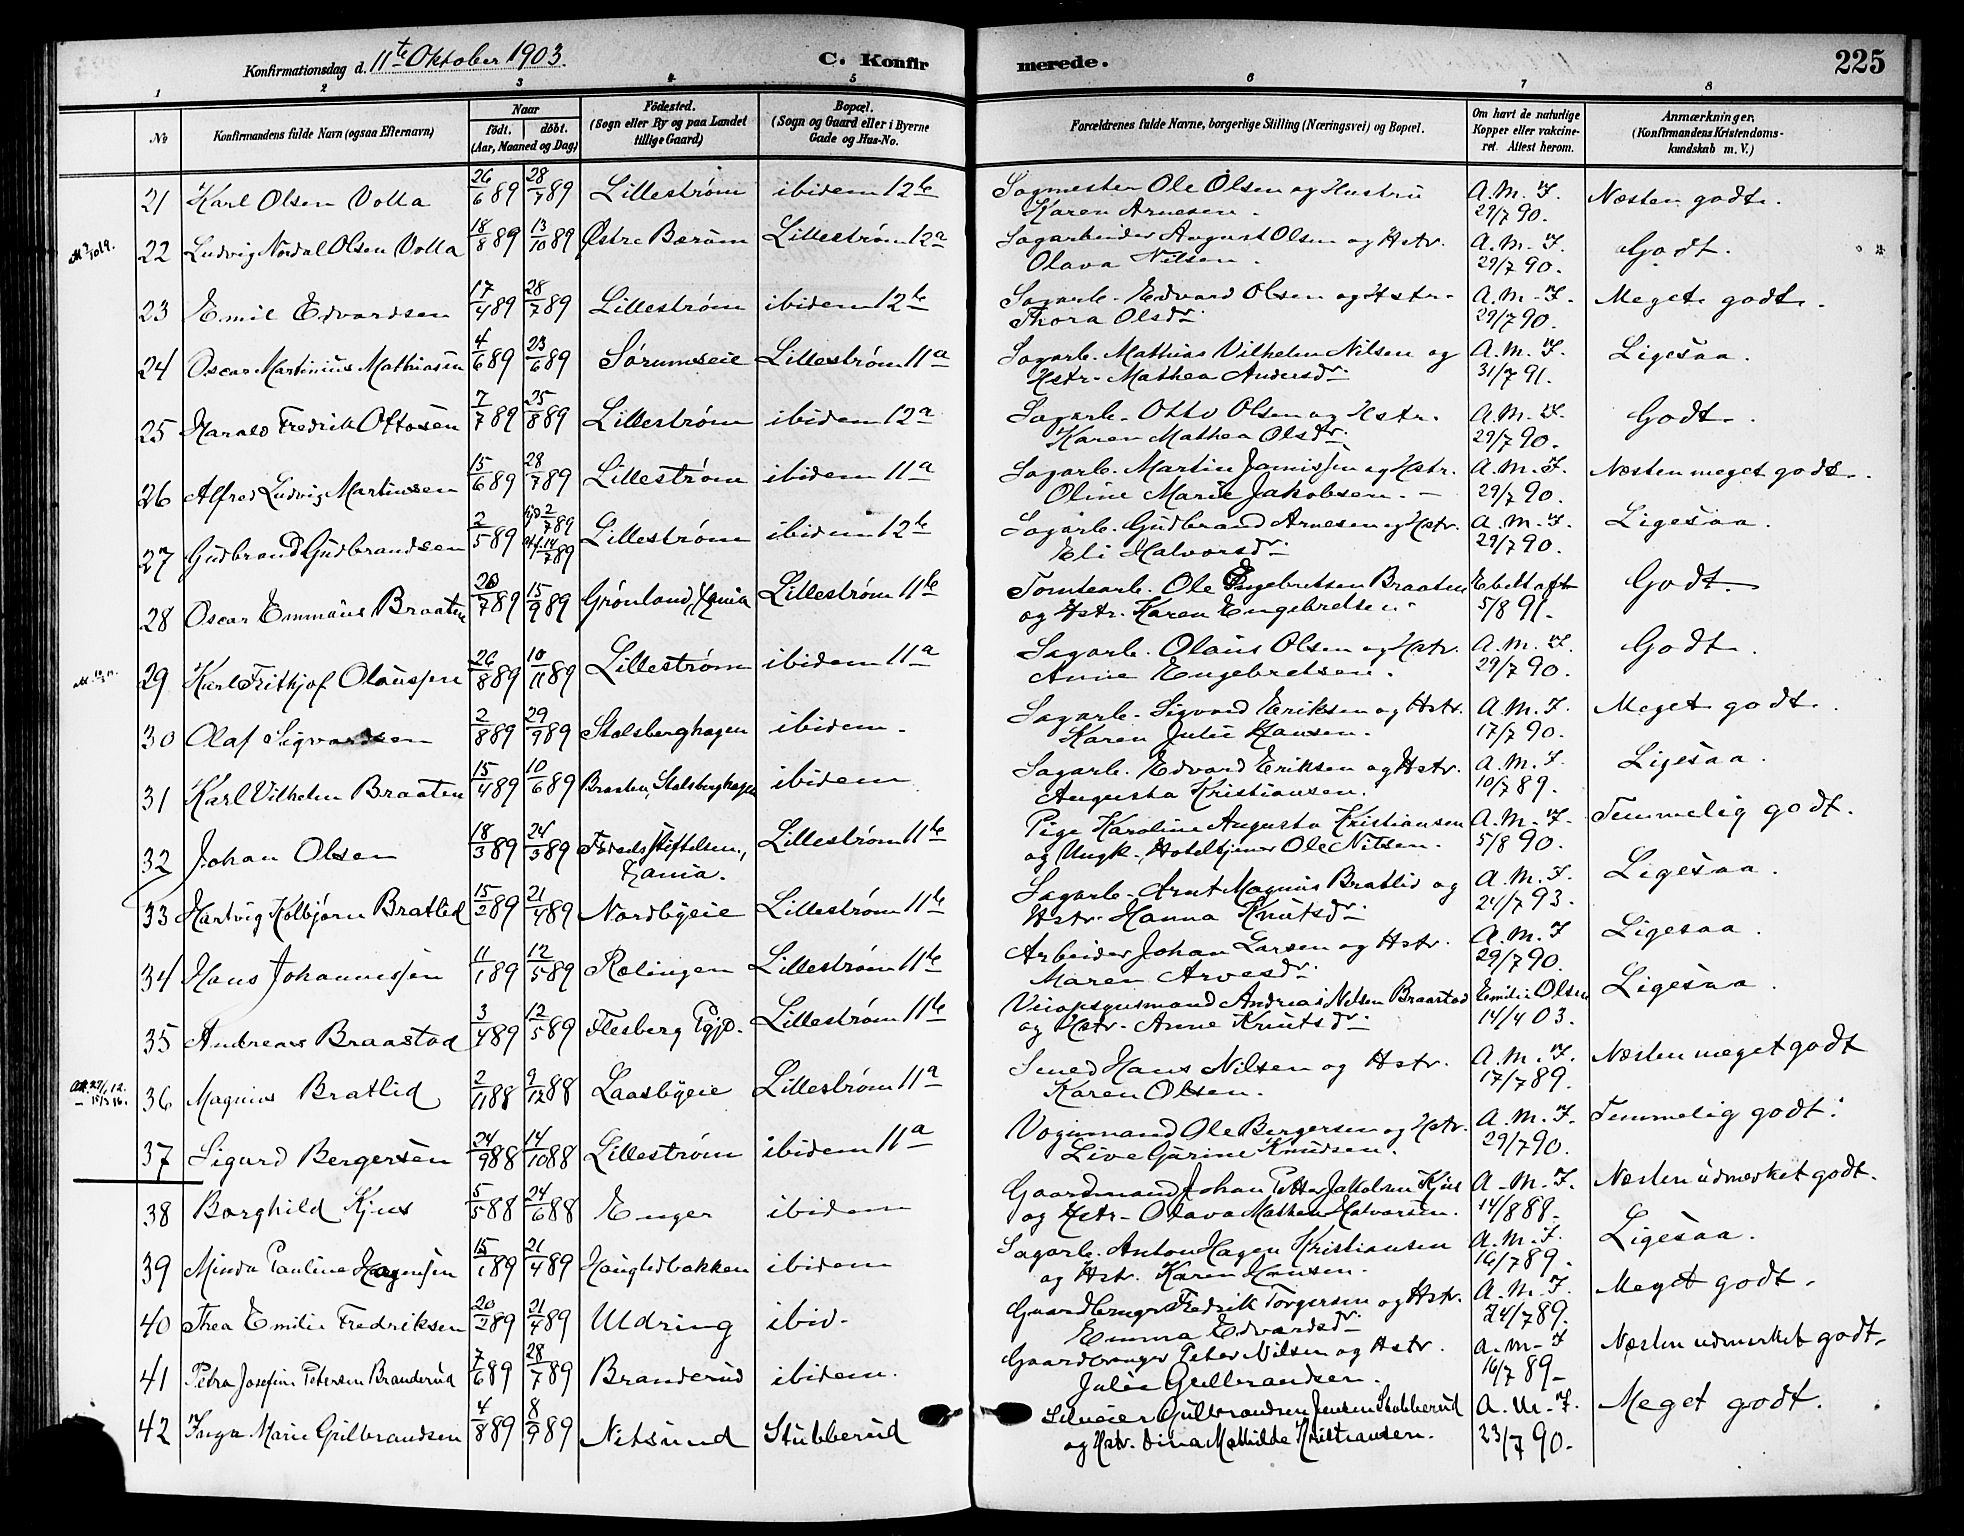 Konfirmationsdag d. 11te Oktober 1903.
C. Konfir
merede.
225
1 2 3 4 5 6 7 8
No
Konfirmandens fulde Navn (ogsaa Efternavn)
Naar
født. døbt.
(Aar, Maaned og Dag)
Fødested.
(Sogn eller By og paa Landet
tillige Gaard)
Bopæl.
(Sogn og Gaard eller i Byerne
Gade og Hus-No.
Forældrenes fulde Navne, borgerlige Stilling (Næringsvei) og Bopæl.
Om havt de naturlige
Kopper eller vakcine-
ret. Attest herom.
Anmærkninger.
(Konfirmandens Kristendoms-
kundskab m. V.)
21 Karl Olsen Volla 26/6 89 28/7 89 Lillestrøm ibidem 12b Sagmester Ole Olsen og Hustru A. M. F. Næsten godt.
Karen Arnesen. 29/7 90.
22 Ludvig Nordal Olsen Volla 18/8 89 13/10 89 Østre Bærum Lillestrøm 12a Sagarbeider August Olsen og Hstr. A. M. F. Godt.
Olava Nilsen. 29/7 90.
23 Emil Edvardsen 17/4 89 28/7 89 Lillestrøm ibidem 12b Sagarb. Edvard Olsen og Hstr. A. M. F. Meget godt.
Thora Olsdr. 29/7 90.
24 Oscar Martinius Mathiasen 4/6 89 23/6 89 Sørumseie Lillestrøm 11a Sagarb. Mathias Vilhelm Nilsen og A. M. F. Ligesaa.
Hstr. Mathea Andersdr. 31/7 91.
25 Harald Fredrik Ottosen 7/7 89 25/8 89 Lillestrøm ibidem 12a Sagarb. Otto Olsen og Hstr. A. M. F. Godt.
Karen Mathea Olsdr. 29/7 90.
26 Alfred Ludvig Martinsen 15/6 89 28/7 89 Lillestrøm ibidem 11a Sagarb. Martin Jamissen og Hstr. A. M. F. Næsten meget godt.
Oline Marie Jakobsen. 29/7 90.
27 Gudbrand Gudbrandsen 2/5 89 2/7 89 14/7 89 Lillestrøm ibidem 12b Sagarb. Gudbrand Arnesen og Hstr. A. M. F. Ligesaa.
Eli Halvorsdr. 29/7 90.
28 Oscar Emmaus Braaten 20/7 89 15/9 89 Grønland, Xania Lillestrøm 11b Tomtearb. Ole Engebretsen Braaten Godt.
og Hstr. Karen Engebretsen. 5/8 91.
29 Karl Frithjof Olaussen 26/8 89 10/11 89 Lillestrøm ibidem 11a Sagarb. Olaus Olsen og Hstr. A. M. F. Godt.
Anne Engebretsen. 29/7 90.
30 Olaf Sigvardsen 2/8 89 29/9 89 Stalsberghagen ibidem. Sagarb. Sigvard Eriksen og Hstr. A. M. F. Meget godt.
Karen Julie Hansen. 17/7 90.
31 Karl Vilhelm Braaten 15/4 89 10/6 89 Braaten, Stalsberghagen ibidem Sagarb. Edvard Eriksen og Hstr. A. M. F. Ligesaa.
Augusta Kristiansen. 10/7 89.
32 Johan Olsen 18/3 89 24/3 89 Fødselsstiftelsen, Xania. Lillestrøm 11b Pige Karoline Augusta Kristiansen A. M. F. Temmelig godt.
og Ungk. Hoteltjener Ole Nilsen. 5/8 90.
33 Hartvig Kolbjørn Bratlid 15/2 89 21/4 89 Nordbyeie Lillestrøm 11b Sagarb. Arnt Magnus Bratlid og A. M. F. Ligesaa.
Hstr. Hanna Knutsdr. 24/7 93.
34 Hans Johannessen 11/1 89 12/5 89 Rælingen Lillestrøm 11b Arbeider Johan Larsen og Hstr. A. M. F Ligesaa.
Maren Arvesdr. 29/7 90.
35 Andreas Braastad 3/4 89 12/5 89 Flesberg Pgjd. Lillestrøm 11b Andreas Nilsen Braastad Emilie Olsen Ligesaa.
og Hstr. Anne Knutsdr. 14/4 03.
36 Magnus Bratlid 2/11 88 9/12 88 Laasbyeie Lillestrøm 11a Smed Hans Nilsen og Hstr. A. M. F. Næsten meget godt
Karen Olsen. 17/7 89.
37 Sigurd Bergersen 24/9 88 14/10 88 Lillestrøm ibidem 11a Vognmand Ole Bergersen og Hstr. A. M. F. Temmelig godt.
Live Gurine Knudsen. 29/7 90.
38 Borghild Kjus 5/5 88 24/6 88 Enger ibidem Gaardmand Johan Petter Jakobsen Kjus A. M. F. Næsten udmerket godt.
og Hstr. Olava Mathea Halvorsen. 14/8 88.
39 Minda Pauline Hagensen 15/1 89 21/4 89 Haugledbakken ibidem Sagarb. Anton Hagen Kristiansen A. M. F. Ligesaa.
og Hstr. Karen Hansen. 16/7 89.
40 Thea Emilie Fredriksen 20/2 89 21/4 89 Uldring ibid. Gaardbruger Fredrik Torgersen og Hstr. A. M. F. Meget godt.
Emma Edvardsdr. 24/7 89.
41 Petra Josefine Petersen Branderud 7/6 89 28/7 89 Branderud ibidem. Gaardbruger Peter Nilsen og Hstr. A. M. F Næsten udmerket godt.
Julie Gulbrandsen. 16/7 89
42 Inga Marie Gulbrandsen 4/8 89 8/9 89 Nitsund Stubberud Selveier Gulbrandsen Jensen Stubberud A. M. F. Meget godt.
og Hstr. Dina Mathilde Kristiansen. 23/7 90.